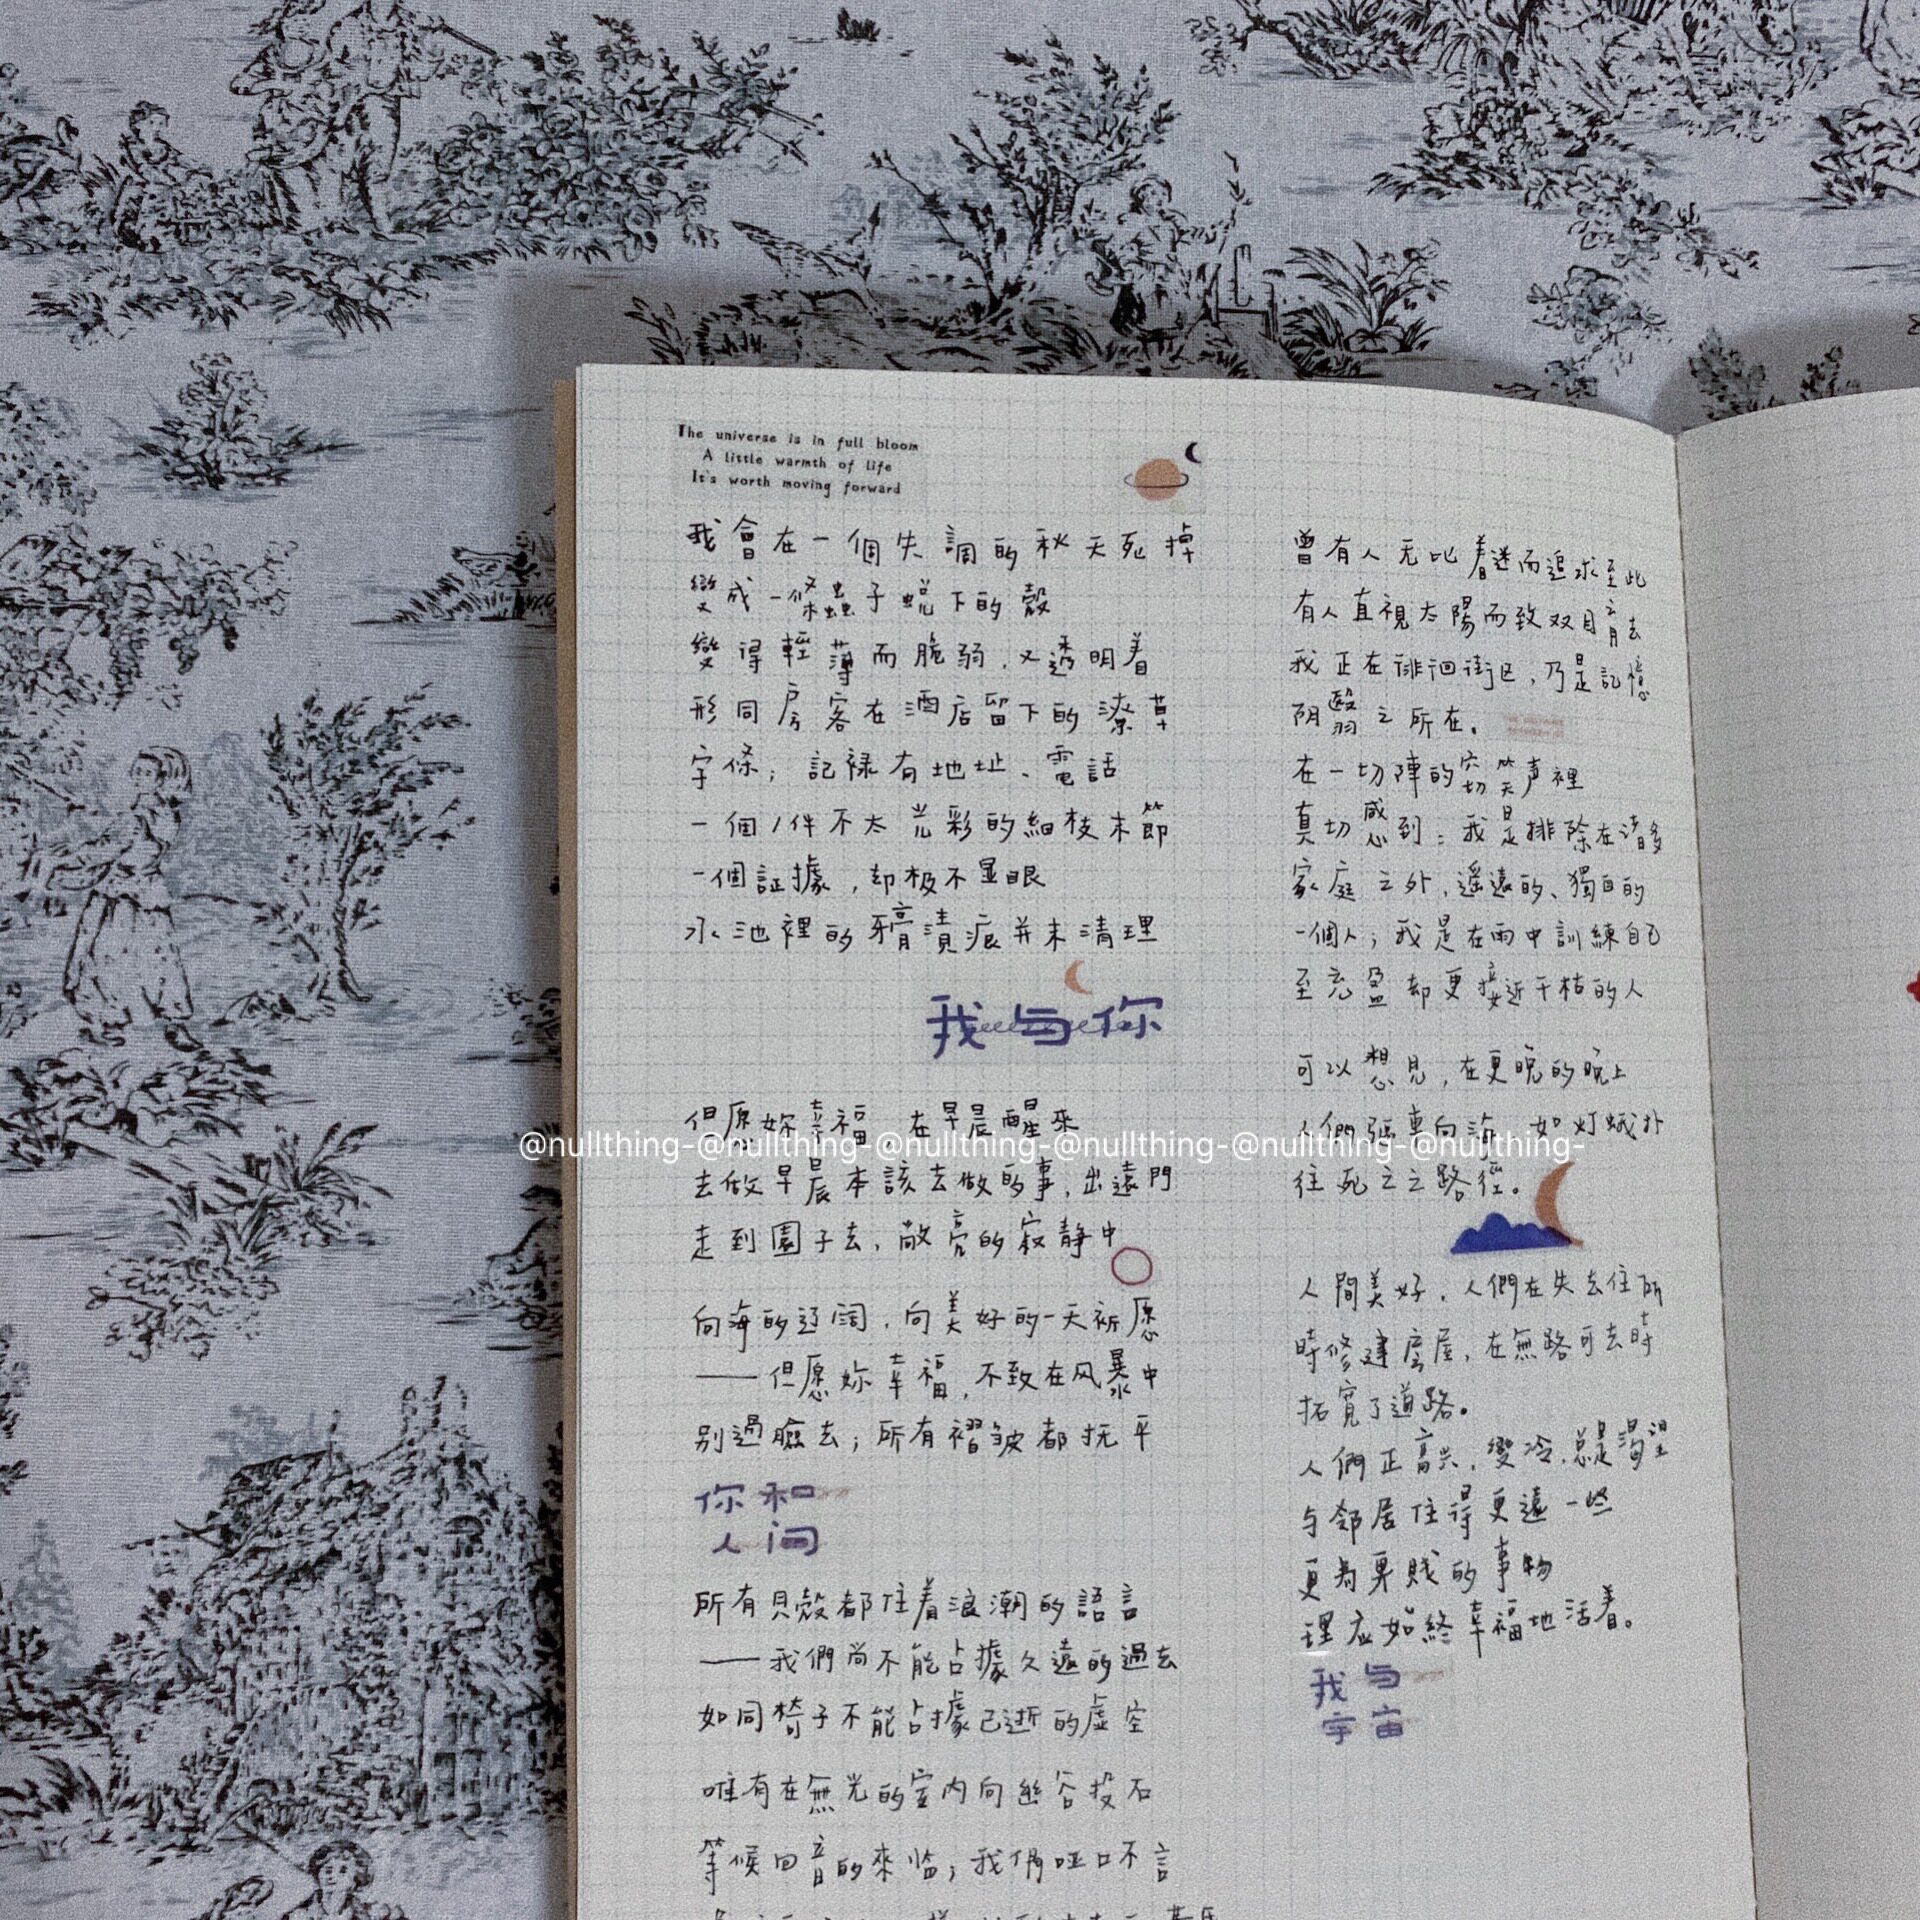 The universe is in full bloom
A little warmth of life
It's worth moving forward
我會在一個失調的秋天死掉
變成一條蟲子蛻下的殼
變得輕薄而脆弱，又透明着
形同房客在酒店留下的潦草
字條；記祿有地址、電話
一個/件不太光彩的細枝末節
一個証據，却极不显眼
水池裡的牙膏漬痕并未清理
我与你
但愿妳幸福 在早晨醒來
去做早晨本該去做的事，出遠門
走到園子去，敞亮的寂静中
向海的辽阔，向美好的一天祈愿
——但愿妳幸福，不致在风暴中
别過臉去；所有褶皱都抚平
你和
人间
所有貝殼都住着浪潮的語言
——我們尚不能占據久遠的過去
如同椅子不能占據已逝的虛空
唯有在無光的室内向幽谷投石
等候回音的來临；我們哑口不言
曾有人无比着迷而追求至此
有人直視太陽而致双目盲去
我正在徘徊街区，乃是記憶
阴翳之所在。
在一切陣的窃笑声裡
真切感到：我是排除在诸多
家庭之外，遥遠的、獨自的
一個人；我是在雨中訓練自己
至充盈却更接近干枯的人
可以想見，在更晚的晚上
人們驱車向海 如灯蛾扑
往死之之路徑。
人間美好，人們在失去住所
時修建房屋，在無路可去時
拓寬了道路。
人們正高兴，變冷，总是渴望
与邻居住得更遠一些
更為卑賎的事物
理应如終幸福地活着。
我与
宇宙
@nullthing-@nullthing-@nullthing-@nullthing-@nullthing-@nullthing-